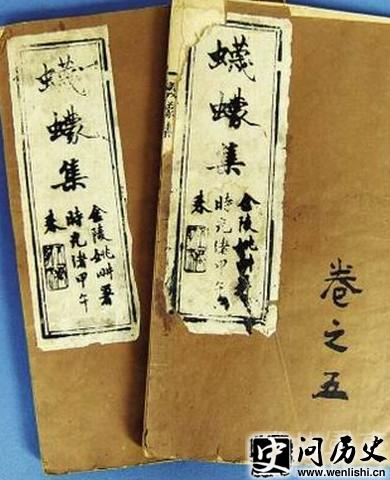 蠛蠓集
金陵姚畊署
時光緒甲午
春
蠛蠓集
金陵姚畊
時光緒甲午
春
卷之五
史 问历史
www.wenlishi.cn